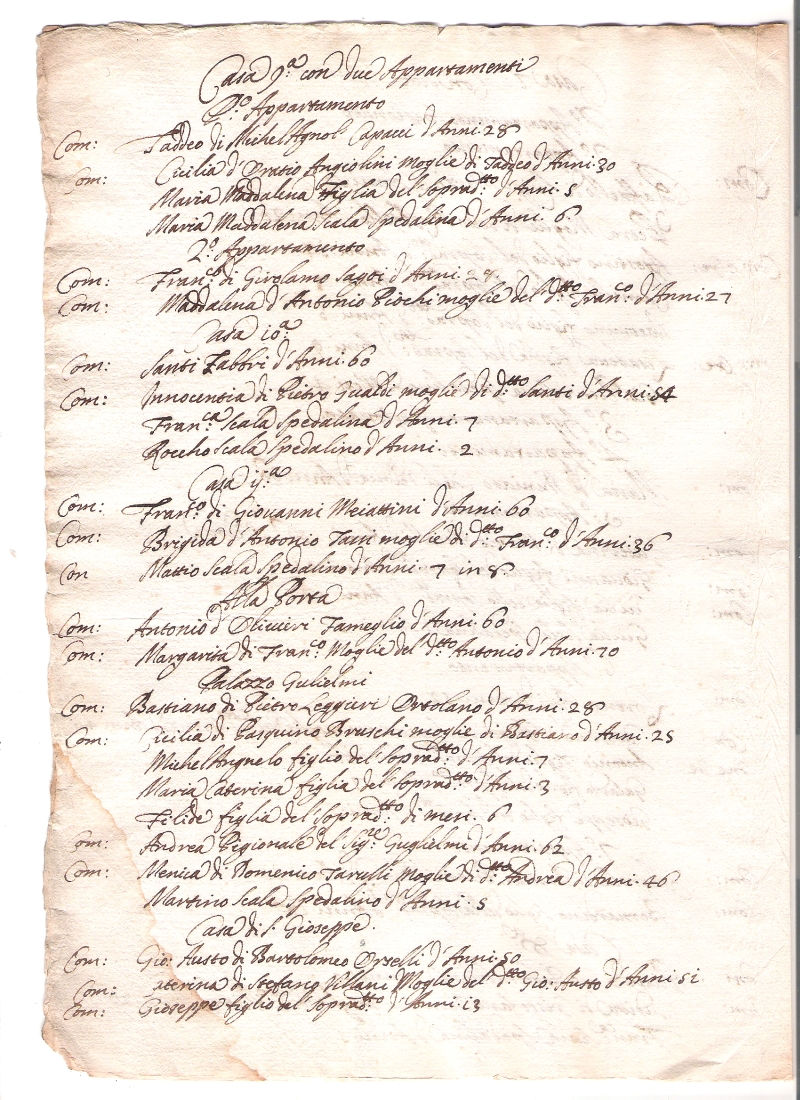 Casa 9.ª con due Appartamenti
P.º Appartamento
Com: Taddeo di Michel Agnol' Capacci d'Anni 28
Com: Cicilia d'Oratio Angiolini moglie di Taddeo d'Anni 30
Maria Maddalena Figlia del soprad.tto d'Anni 5
Maria Maddalena Scala Spedalina d'Anni 6
2.º Appartamento
Com: Fran.co di Girolamo d'Anni 28
Com: Maddalena d'Antonio Piochi moglie del d.tto Fran.co d'Anni 27
Casa 10.ª
Com: Santi Fabbri d'Anni 60
Com: Innocentia di Pietro Gualdi moglie di d.tto Santi d'Anni 54
Fran.ca Scala Spedalina d'Anni 7
Roccho Scala Spedalino d'Anni 2
Casa ij.ª
Com: Fran.co di Giovanni Meiattini d'Anni 60
Com: Brigida d'Antonio moglie di d.tto Fran.co d'Anni 36
Con Mattio Scala Spedalino d'Anni 7 in 8
Alla Porta
Com: Antonio d'Olivieri Fameglio d'Anni 60
Com: Margarita di Fran.co Moglie del d.tto Antonio d'Anni 70
Palazzo Gulielmi
Com: Bastiano di Pietro Leggieri Ortolano d'Anni 28
Com: Cicilia di Pasquino Bruschi moglie di Bastiano d'Anni 25
Michel Angnelo figlio del soprad.tto d'Anni 7
Maria Caterina figlia del soprad.tto d'Anni 3
Filide figlia del soprad.tto di mesi 6
om: Andrea Pigionale del Sig.re Guglielmi d'Anni 62
Com: Menica di Domenico Tarulli Moglie di d.tto Andrea d'Anni 46
Martino Scala Spedalino d'Anni 5
Casa di S. Gioseppe
Com: Gio: Austo di Bartolomeo Orselli d'Anni 50
Com: aterina di Stefano Villani Moglie del d.tto Gio: Austo d'Anni 51
Com: Gioseppe figlio del soprad.tto d'Anni 13